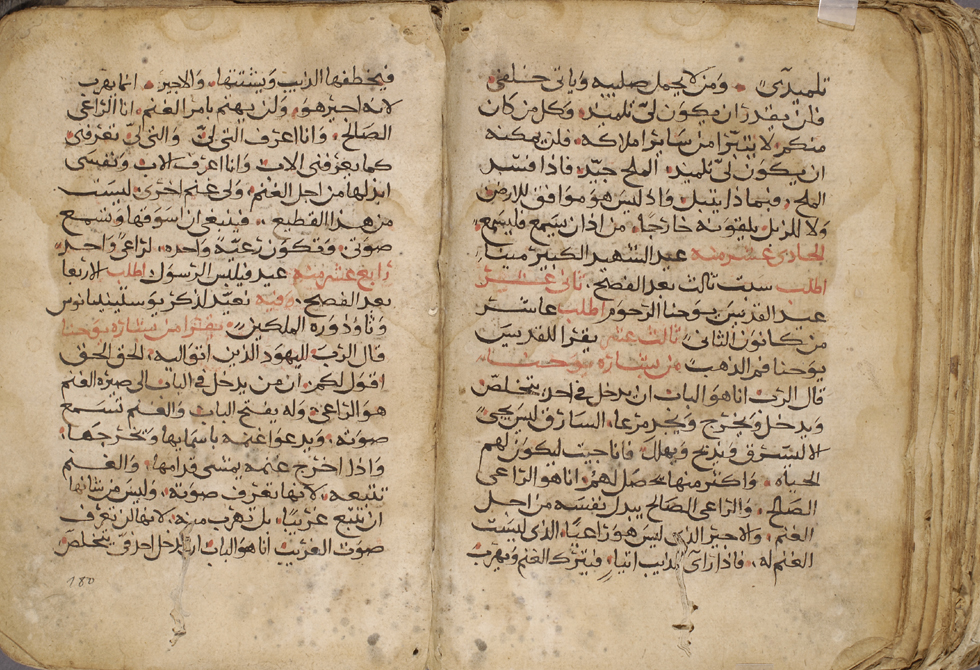 تلميدي • ومن لا يحمل صليبه وياتي خلفي
فلن يقدر ان يكون لي تلميد • وكل من كان
منكم لا يتبرا من ساير املاكه • فلن يمكنه
ان يكون لي تلميد • الملح جيد • فاذا فسد
الملح • فبماذا يتبل • واذ ليس هو موافق للارض
ولا للزبل يلقونه خارجا • من له اذان تسمع فليسمع
الحادي عشر منه عيد الشهيد الكبير مينا
اطلب سبت تالت بعد الفصح • تاني عشر
عيد القديس يوحنا الرحوم اطلب عاشر
من كانون الثاني • تالت عشر يقرا للقديس
يوحنا فم الذهب من بشاره يوحنا
قال الرب انا هو الباب ان يدخل في احد يتخلص
ويدخل ويخرج ويجد مرعا • السارق ليس يجي
الا ليسرق ويدبح ويهلك • فانا جيت ليكون لهم
الحياه • واكتر منها يحصل لهم • انا هو الراعي
الصالح • والراعي الصالح يبدل نفسه من اجل
الغنم • والاجير الذي ليس هو راعيا • الذي ليست
الغنم له • فاذا راى الديب اتيا • فيترك الغنم ويهرب
فيخطفها الديب ويشتتها • والاجير • انما يهرب
لانه اجير هو • ولن يهتم بامر الغنم • انا الراعي
الصالح • وانا اعرف التي لي • والتي لي تعرفني
كما يعرفني الاب • وانا اعرف الاب • ونفسي
ابدلها من اجل الغنم • ولي غنم اخرى ليست
من هذا القطيع • فينبغي ان اسوقها وتسمع
صوتي • وتكون رعية واحده • لراعي واحد
رابع عشر منه عيد فيلبس الرسول اطلب الاربعا
بعد الفصح • وفيه نعيد لذكر يوستينيانوس
وتاودوره الملكين • يقرا من بشاره يوحنا
قال الرب لليهود الذين اتوا اليه • الحق الحق
اقول لكم • ان من يدخل في الباب الى صيرة الغنم
هو الراعي • وله يفتح الباب • والغنم تسمع
صوته • ويدعوا غنمه باسمايها وتخرجها
واذا اخرج غنمه يمشي قدامها • والغنم
تتبعه • لانها تعرف صوته • وليس من شانها
ان تتبع غريبا • بل تهرب منه • لانها لن تعرف
صوت الغريب • انا هو الباب ان يدخل احد في يتخلص
180